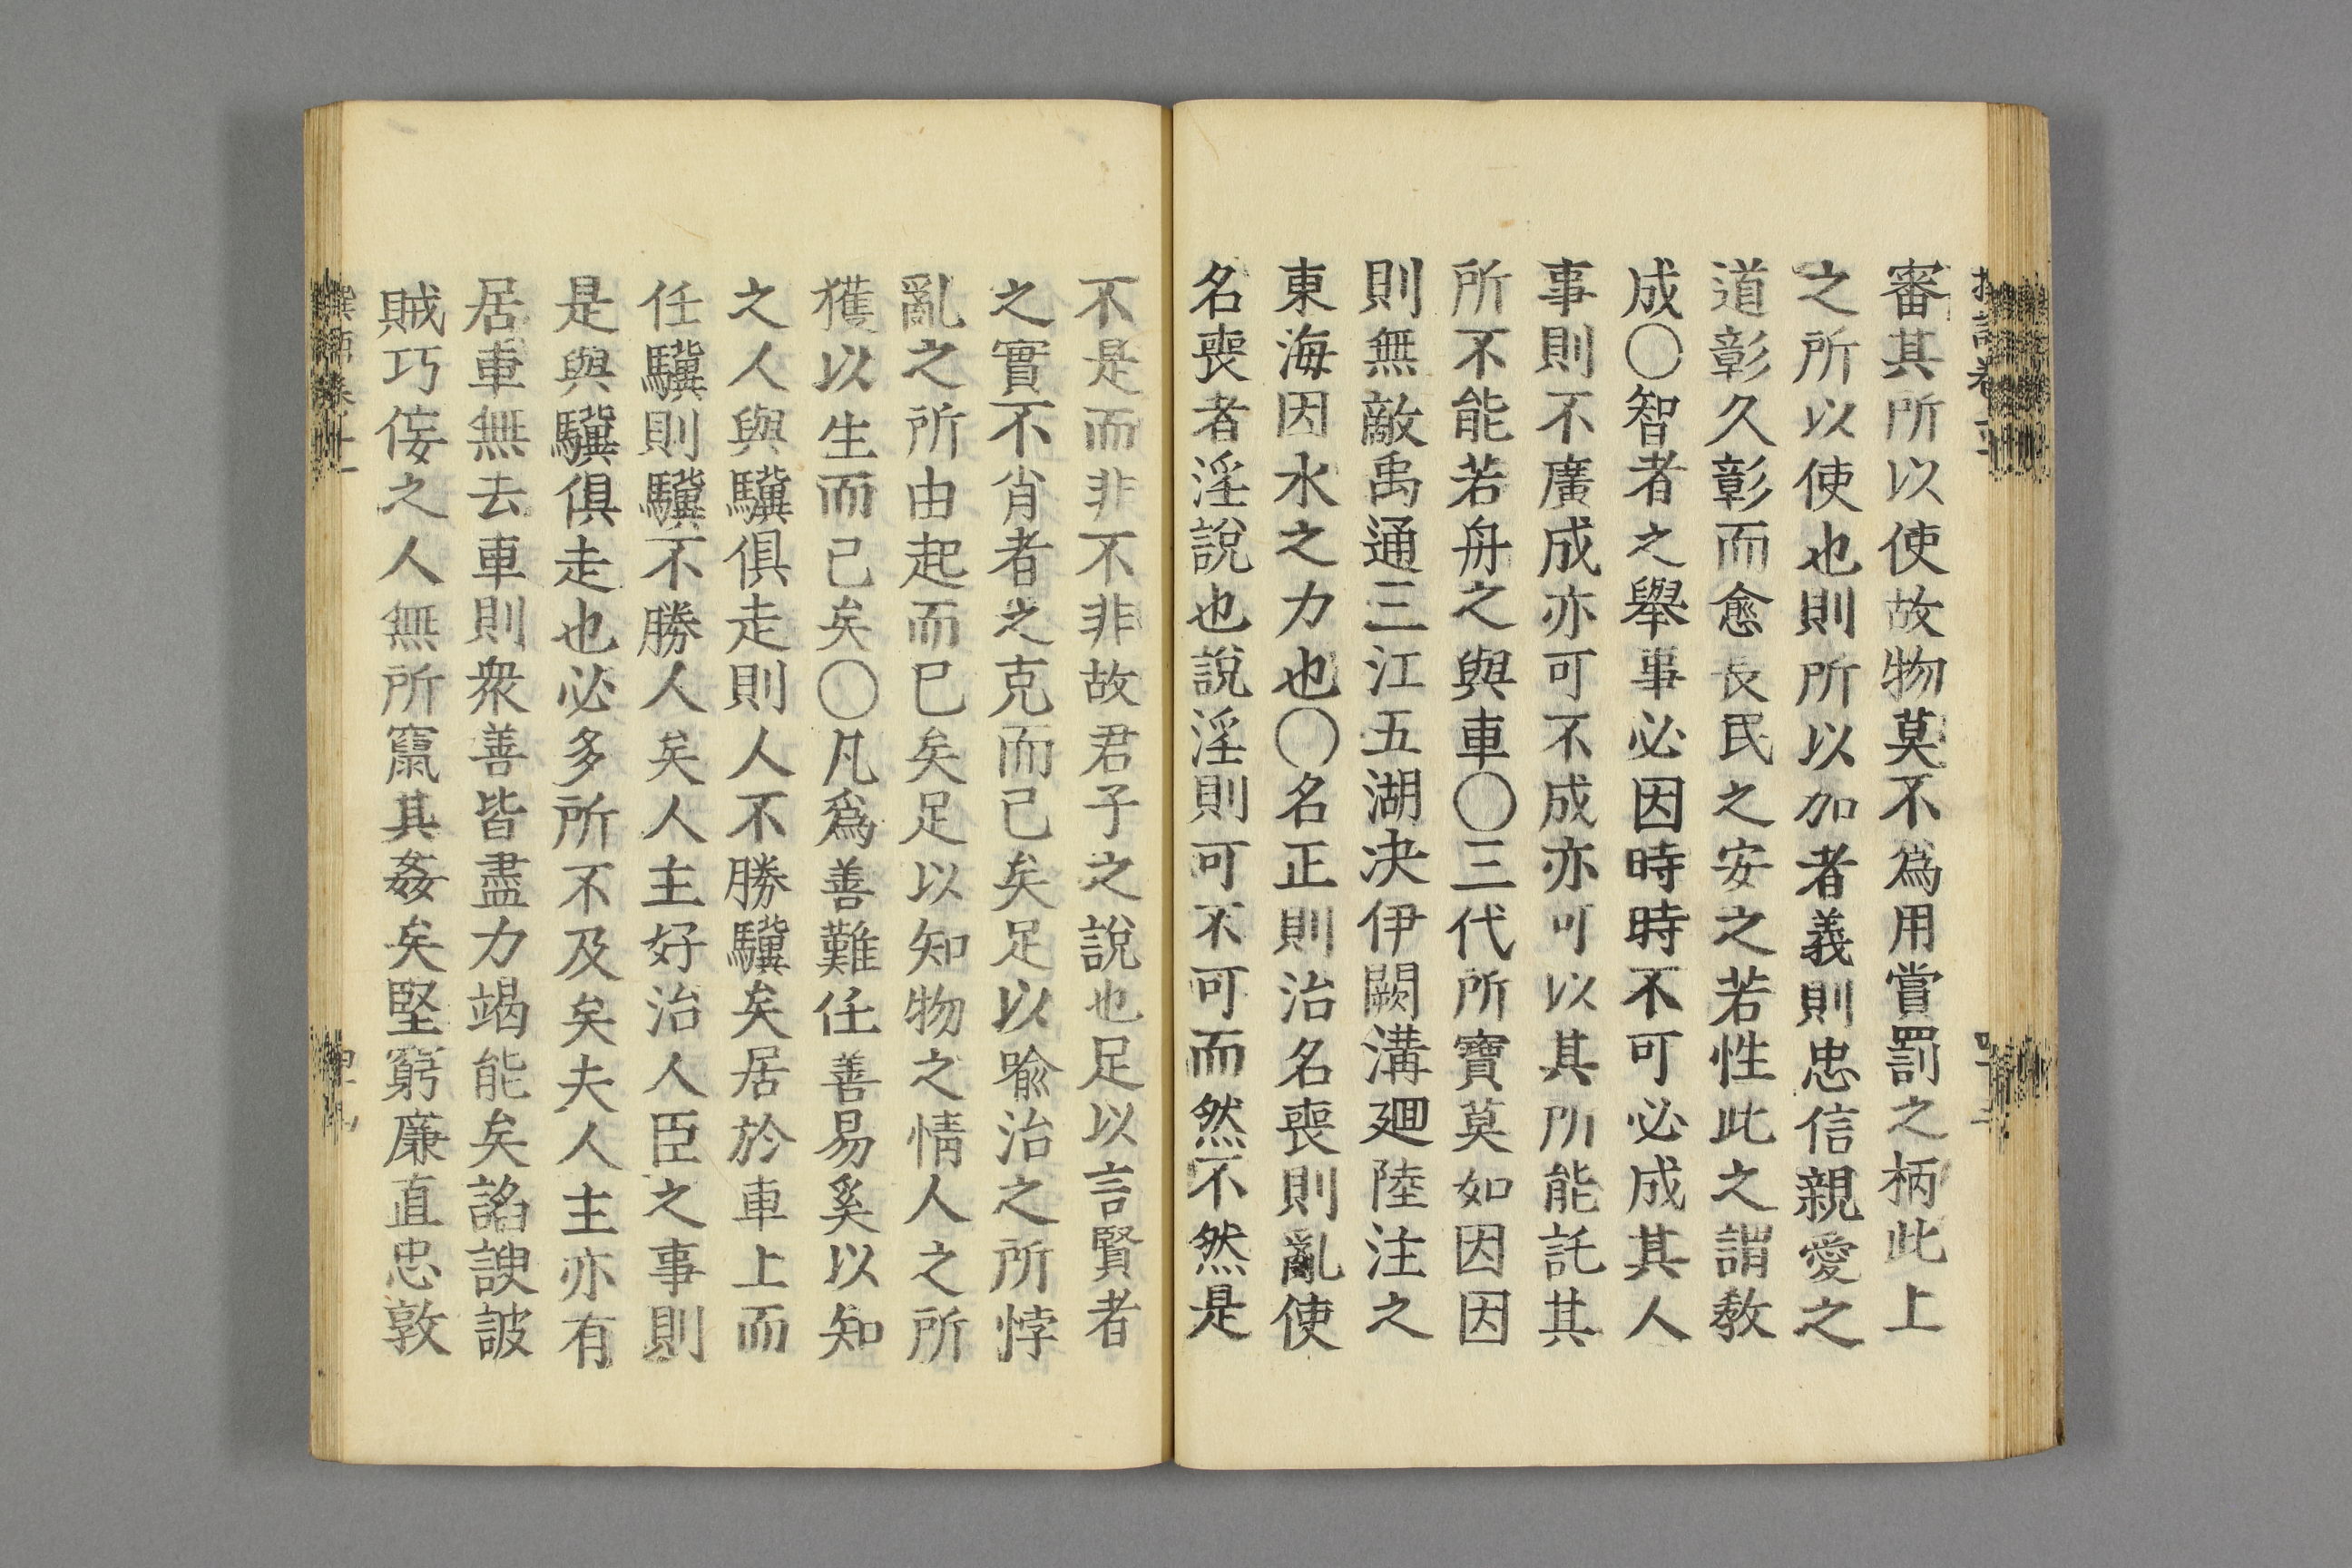 審其所以使故物莫不爲用賞罰之柄此上
之所以使也則所以加者義則忠信親愛之
道彰久彰而愈長民之安之若性此之謂教
成〇智者之舉事必因時時不可必成其人
事則不廣成亦可不成亦可以其所能託其
所不能若舟之與車〇三代所寶莫如因因
則無敵禹通三江五湖决伊闕溝廻陸注之
東海因水之力也〇名正則治名喪則亂使
名喪者淫說也說淫則可不可而然不然是
不是而非不非故君子之說也足以言賢者
之實不肖者之克而已矣足以喩治之所悖
亂之所由起而已矣足以知物之情人之所
獲以生而已矣〇凡爲善難任善易奚以知
之人與驥俱走則人不勝驥矣居於車上而
任驥則驥不勝人矣人主好治人臣之事則
是與驥俱走也必多所不及矣夫人主亦有
居車無去車則衆善皆盡力竭能矣諂諛詖
賊巧佞之人無所竄其姦矣堅窮廉直忠敦